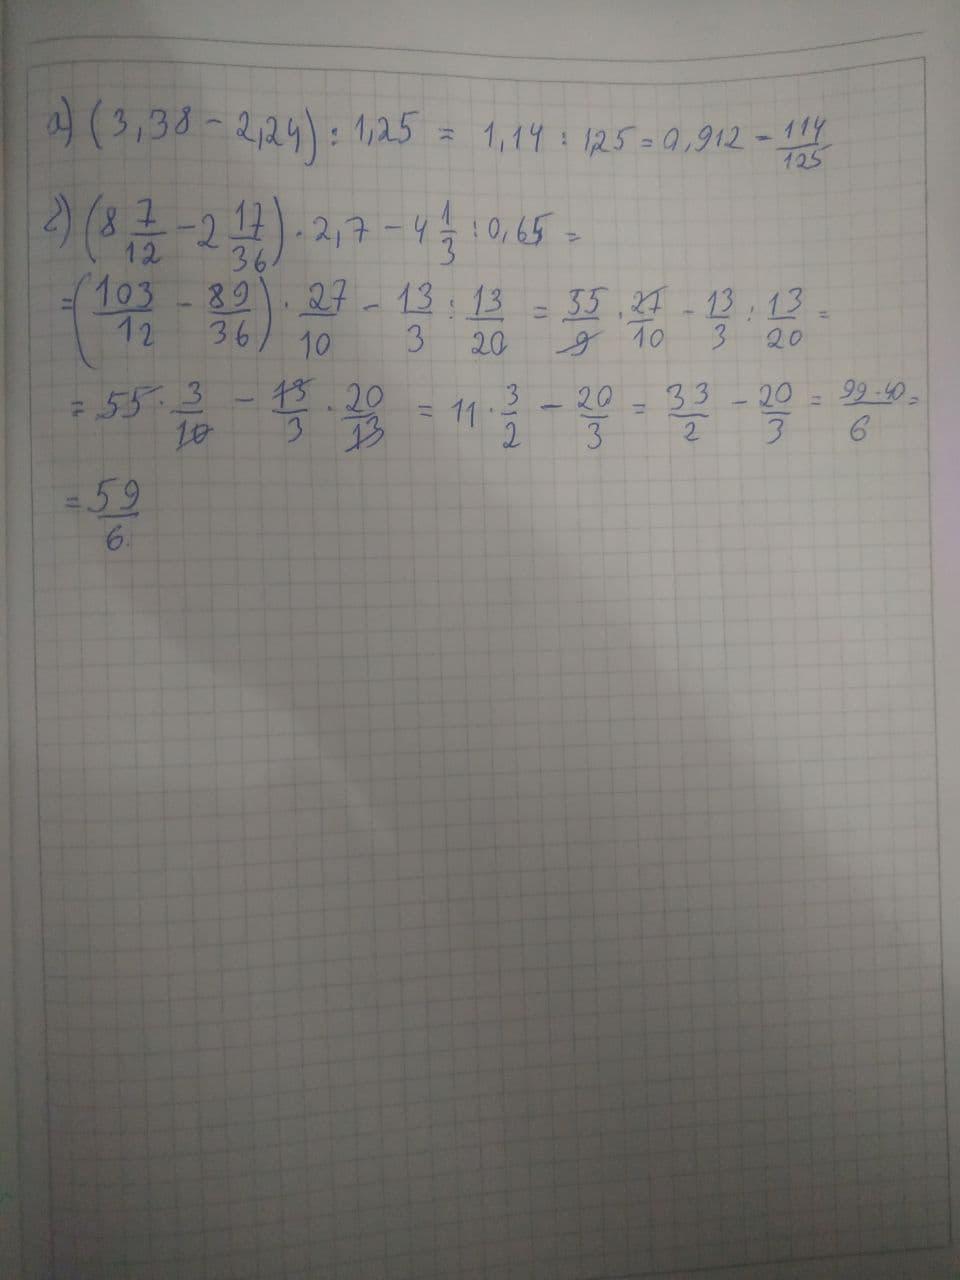 а) (3,38 - 2,24) : 1,25 = 1,14 : 1,25 = 0,912 = 114/125
б) (8 7/12 - 2 17/36) · 2,7 - 4 1/3 : 0,65 =
= (103/12 - 89/36) · 27/10 - 13/3 : 13/20 = 55/9 · 27/10 - 13/3 : 13/20 =
= 55 · 3/10 - 13/3 · 20/13 = 11 · 3/2 - 20/3 = 33/2 - 20/3 = 99-40/6 =
= 59/6